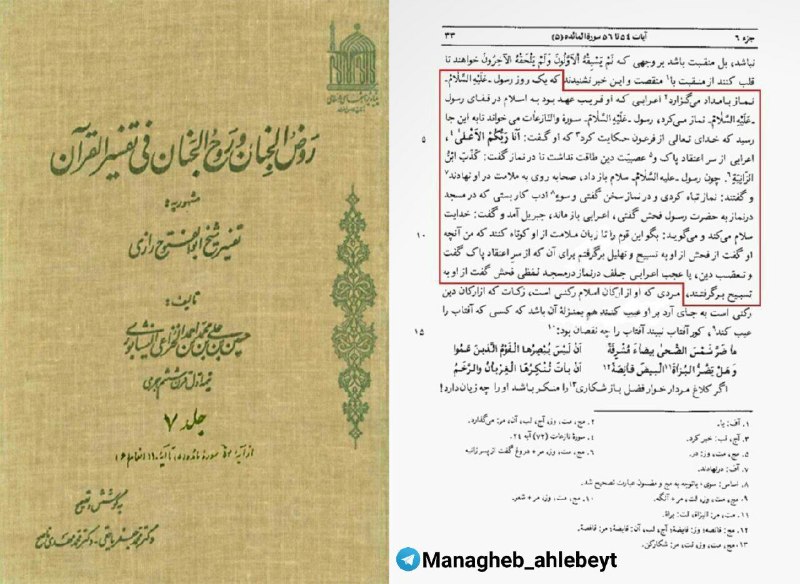 روض الجنان و روح الجنان فی تفسیر القرآن
مشهور به:
تفسیر شیخ ابوالفتوح رازی
تألیف:
حسین بن علی بن محمد بن احمد الخزاعی النیشابوری
نیمه اول قرن ششم هجری
جلد ۷
به کوشش و تصحیح
دکتر محمد جعفر یاحقی - دکتر محمد مهدی ناصح
جزء ۶
آیات ۵۴ تا ۵۶ سورة المائده (۵)
۳۳
نباشد، بل منقبت باشد بر وجهی که لَمْ یَسْبِقْهُ الْأَوَّلُونَ وَلَمْ یَلْحَقْهُ الْآخِرُونَ خواهند تا
قلب کنند از منقبت با۱ منقصت و این خبر نشنیدند که یک روز رسول ـ عَلَیْهِ السَّلامُ ـ
نماز بامداد می‌گزارد۲ اعرابیی که او قریب عهد بود به اسلام در قفای رسول
ـ عَلَیْهِ السَّلامُ ـ نماز می‌کرد، رسول ـ عَلَیْهِ السَّلامُ ـ سورة والنازعات می‌خواند تا به این جا
رسید که خدای تعالی از فرعون حکایت کرد۳ که او گفت: أَنَا رَبُّكُمُ الْأَعْلَى۴،
اعرابی از سر اعتقاد پاک و۵ عصبیّت دین طاقت نداشت تا در نماز گفت: كَذَبَ ابْنُ
الزّانِيَةِ۶. چون رسول ـ علیه السَّلامُ ـ سلام باز داد، صحابه روی به ملامت در او نهادند۷
و گفتند: نماز تباه کردی و در نماز سخن گفتی و سوء۸ ادب کار بستی که در مسجد
در نماز به حضرت رسول فحش گفتی، اعرابی باز ماند، جبریل آمد و گفت: خدایت
سلام می‌کند و می‌گوید: بگو این قوم را تا زبان ملامت از او کوتاه کنند که من آنچه
او گفت از فحش از او به تسبیح و تهلیل برگرفتم برای آن که از سر اعتقاد پاک گفت
و تعصّب دین، یا عجب اعرابیی جلف در نماز در مسجد لفظی فحش گفت از او به
تسبیح برگرفتند، مردی که او از ارکان اسلام رکنی است، زکات که از ارکان دین
رکنی است به جای آرد بر او عیب کنند هم بمنزلهٔ آن باشد که کسی که آفتاب را
عیب کند۹، کور آفتاب نبیند آفتاب را چه نقصان بود:۱۰
ما ضَرَّ شَمْسَ الضُّحیٰ بیضاءَ مُشْرِقَةً
اَنْ لَیْسَ یُبْصِرُها الْقَوْمُ الَّذینَ عَمُوا
وَ هَلْ یَضُرُّ الْبُزاةَ۱۱ الْبیضَ قانِصَةً۱۲
اَنْ باتَ تُنْکِرُها الْغِرْبانُ وَالرَّخَمُ
اگر کلاغ مردار خوار فضل باز شکاری۱۳ را منکر باشد او را چه زیان دارد!
۵
۱۰
۱۵
۱. آف: یا.
۲. مج، مت، وز، آج، لب، آن، مر: می‌گذارد.
۳. آج، لب: خبر کرد.
۴. سورهٔ نازعات (۷۲) آیه ۲۴.
۵. مج، مت، وز: در.
۶. مج، مت، وز، مر + دروغ گفت از پسر زانیه
۷. آف: درنهادند.
۸. اساس: سوی؛ باتوجه به مج و مضمون عبارت تصحیح شد.
۹. مج، مت، وز، لت، مر + آنگه.
۱۰. مج، مت، وز، مر + شعر.
۱۱. مت، مر: البزاة، لت: بزاة.
۱۲. مج: فانصه؛ وز: فایضة؛ آج، لب، آن: قابضة؛ مر: قافصة.
۱۳. مج، مت، وز، لت، مر: شکارکن.
Managheb_ahlebeyt